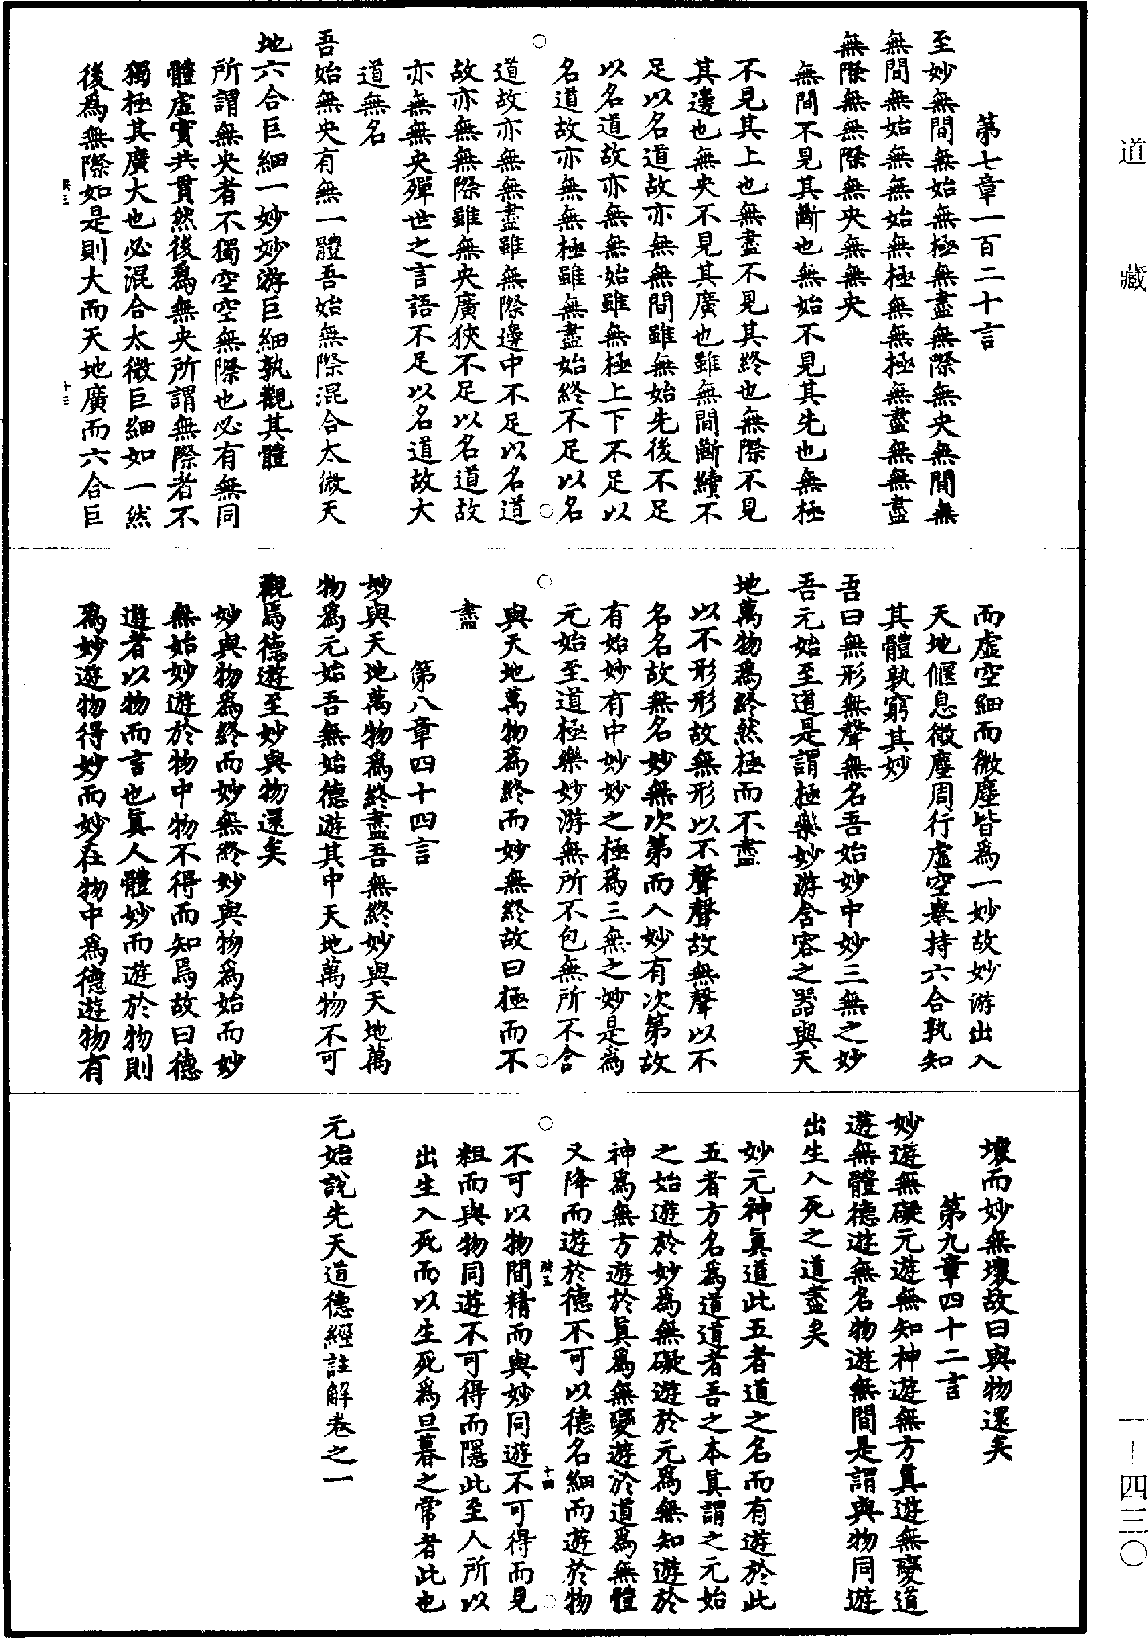 道藏
第七章一百二十言
至妙無間無始無極無盡無際無央無間無
無間無始無無始無極無無極無盡無無盡
無際無無際無央無無央
無間不見其斷也無始不見其先也無極
不見其上也無盡不見其終也無際不見
其邊也無央不見其廣也雖無間斷續不
足以名道故亦無無間雖無始先後不足
以名道故亦無無始雖無極上下不足以
名道故亦無無極雖無盡始終不足以名
道故亦無無盡雖無際邊中不足以名道
故亦無無際雖無央廣狹不足以名道故
亦無無央殫世之言語不足以名道故大
道無名
吾始無央有無一體吾始無際混合太微天
地六合巨細一妙妙游巨細孰觀其體
所謂無央者不獨空空無際也必有無同
體虛實共貫然後爲無央所謂無際者不
獨極其廣大也必混合太微巨細如一然
後爲無際如是則大而天地廣而六合巨
而虛空細而微塵皆爲一妙故妙游出入
天地偃息微塵周行虛空㮣持六合孰知
其體孰窮其妙
吾曰無形無聲無名吾始妙中妙三無之妙
吾元始至道是謂極樂妙游含容之器與天
地萬物爲終然極而不盡
以不形形故無形以不聲聲故無聲以不
名名故無名妙無次第而入妙有次第故
有始妙有中妙妙之極爲三無之妙是爲
元始至道極樂妙游無所不包無所不含
與天地萬物爲終而妙無終故曰極而不
盡
第八章四十四言
妙與天地萬物爲終盡吾無終妙與天地萬
物爲元始吾無始德遊其中天地萬物不可
觀焉德遊至妙與物還矣
妙與物爲終而妙無終妙與物爲始而妙
無始妙遊於物中物不得而知焉故曰德
遊者以物而言也眞人體妙而遊於物則
爲妙遊物得妙而妙在物中爲德遊物有
壞而妙無壞故曰與物還矣
第九章四十二言
妙遊無礙元遊無知神遊無方眞遊無變道
遊無體德遊無名物遊無間是謂與物同遊
出生入死之道盡矣
妙元神眞道此五者道之名而有遊於此
五者方名爲道道者吾之本其謂之元始
之始遊於妙爲無礙遊於元爲無知遊於
神爲無方遊於眞爲無變遊於道爲無體
又降而遊於德不可以德名細而遊於物
不可以物間精而與妙同遊不可得而見
粗而與物同遊不可得而隱此至人所以
出生入死而以生死爲旦暮之常者此也
元始說先天道德經註解卷之一
一－四三〇